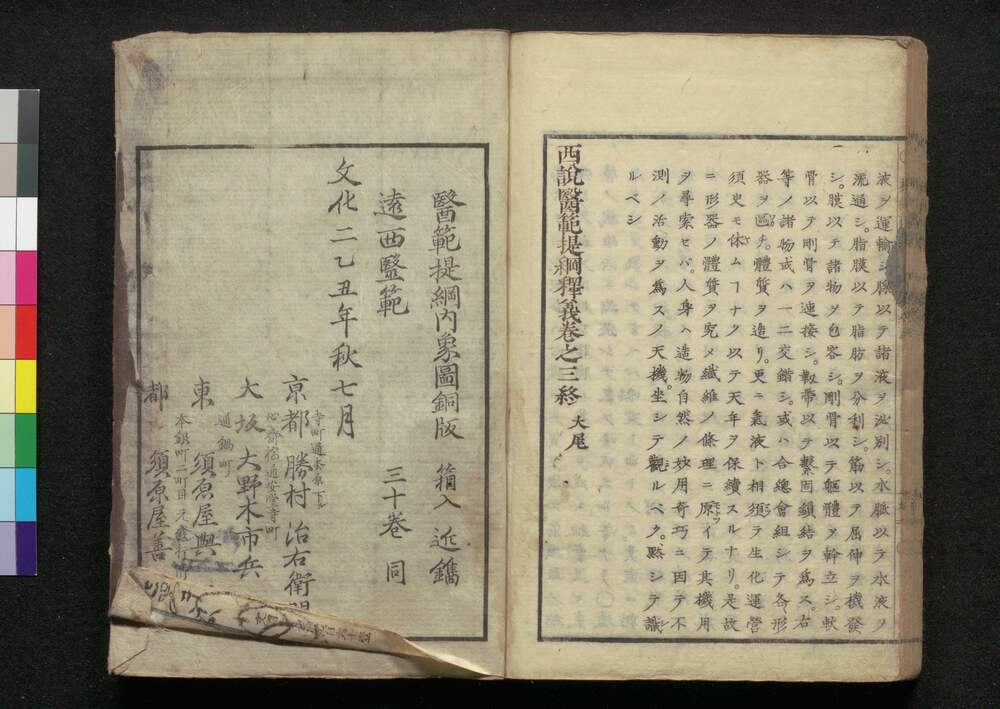 液ヲ運輸シ脉以テ諸液ヲ泌別シ。水脈以テ水液ヲ
流通シ。脂膜以テ脂肪ヲ分利シ。筋以テ屈伸ヲ機發
シ。膜以テ諸物ヲ包容シ。剛骨以テ軀體ヲ幹立シ。軟
骨以テ剛骨ヲ連接シ。靱帶以テ繫固鎖結ヲ爲ス。右
等ノ諸物或ハ一二交錯シ。或ハ合總會組シテ各形
器ヲ區チ。體質ヲ造リ。更ニ氣液ト相須テ生化運營
須臾モ休ムヿナク以テ天年ヲ保續スルナリ。是故
ニ形器ノ體質ヲ究メ纎維ノ條理ニ原イテ其機用
ヲ尋索セバ。人身ハ造物自然ノ妙用奇巧ニ因テ不
測ノ活動ヲ爲スノ天機。坐シテ觀ルベク。黙シテ識
ルベシ
西說醫範提綱釋義卷之三終 大尾
醫範提綱內象圖銅版 箱入 近鐫
遠西醫範 三十卷 同
文化二乙丑年秋七月
寺町通
京都 勝村治右衛門
心齋橋通安堂寺町
大坂 大野木市兵
通鍋町
東 須原屋與
本銀町二町目
都 須原屋善